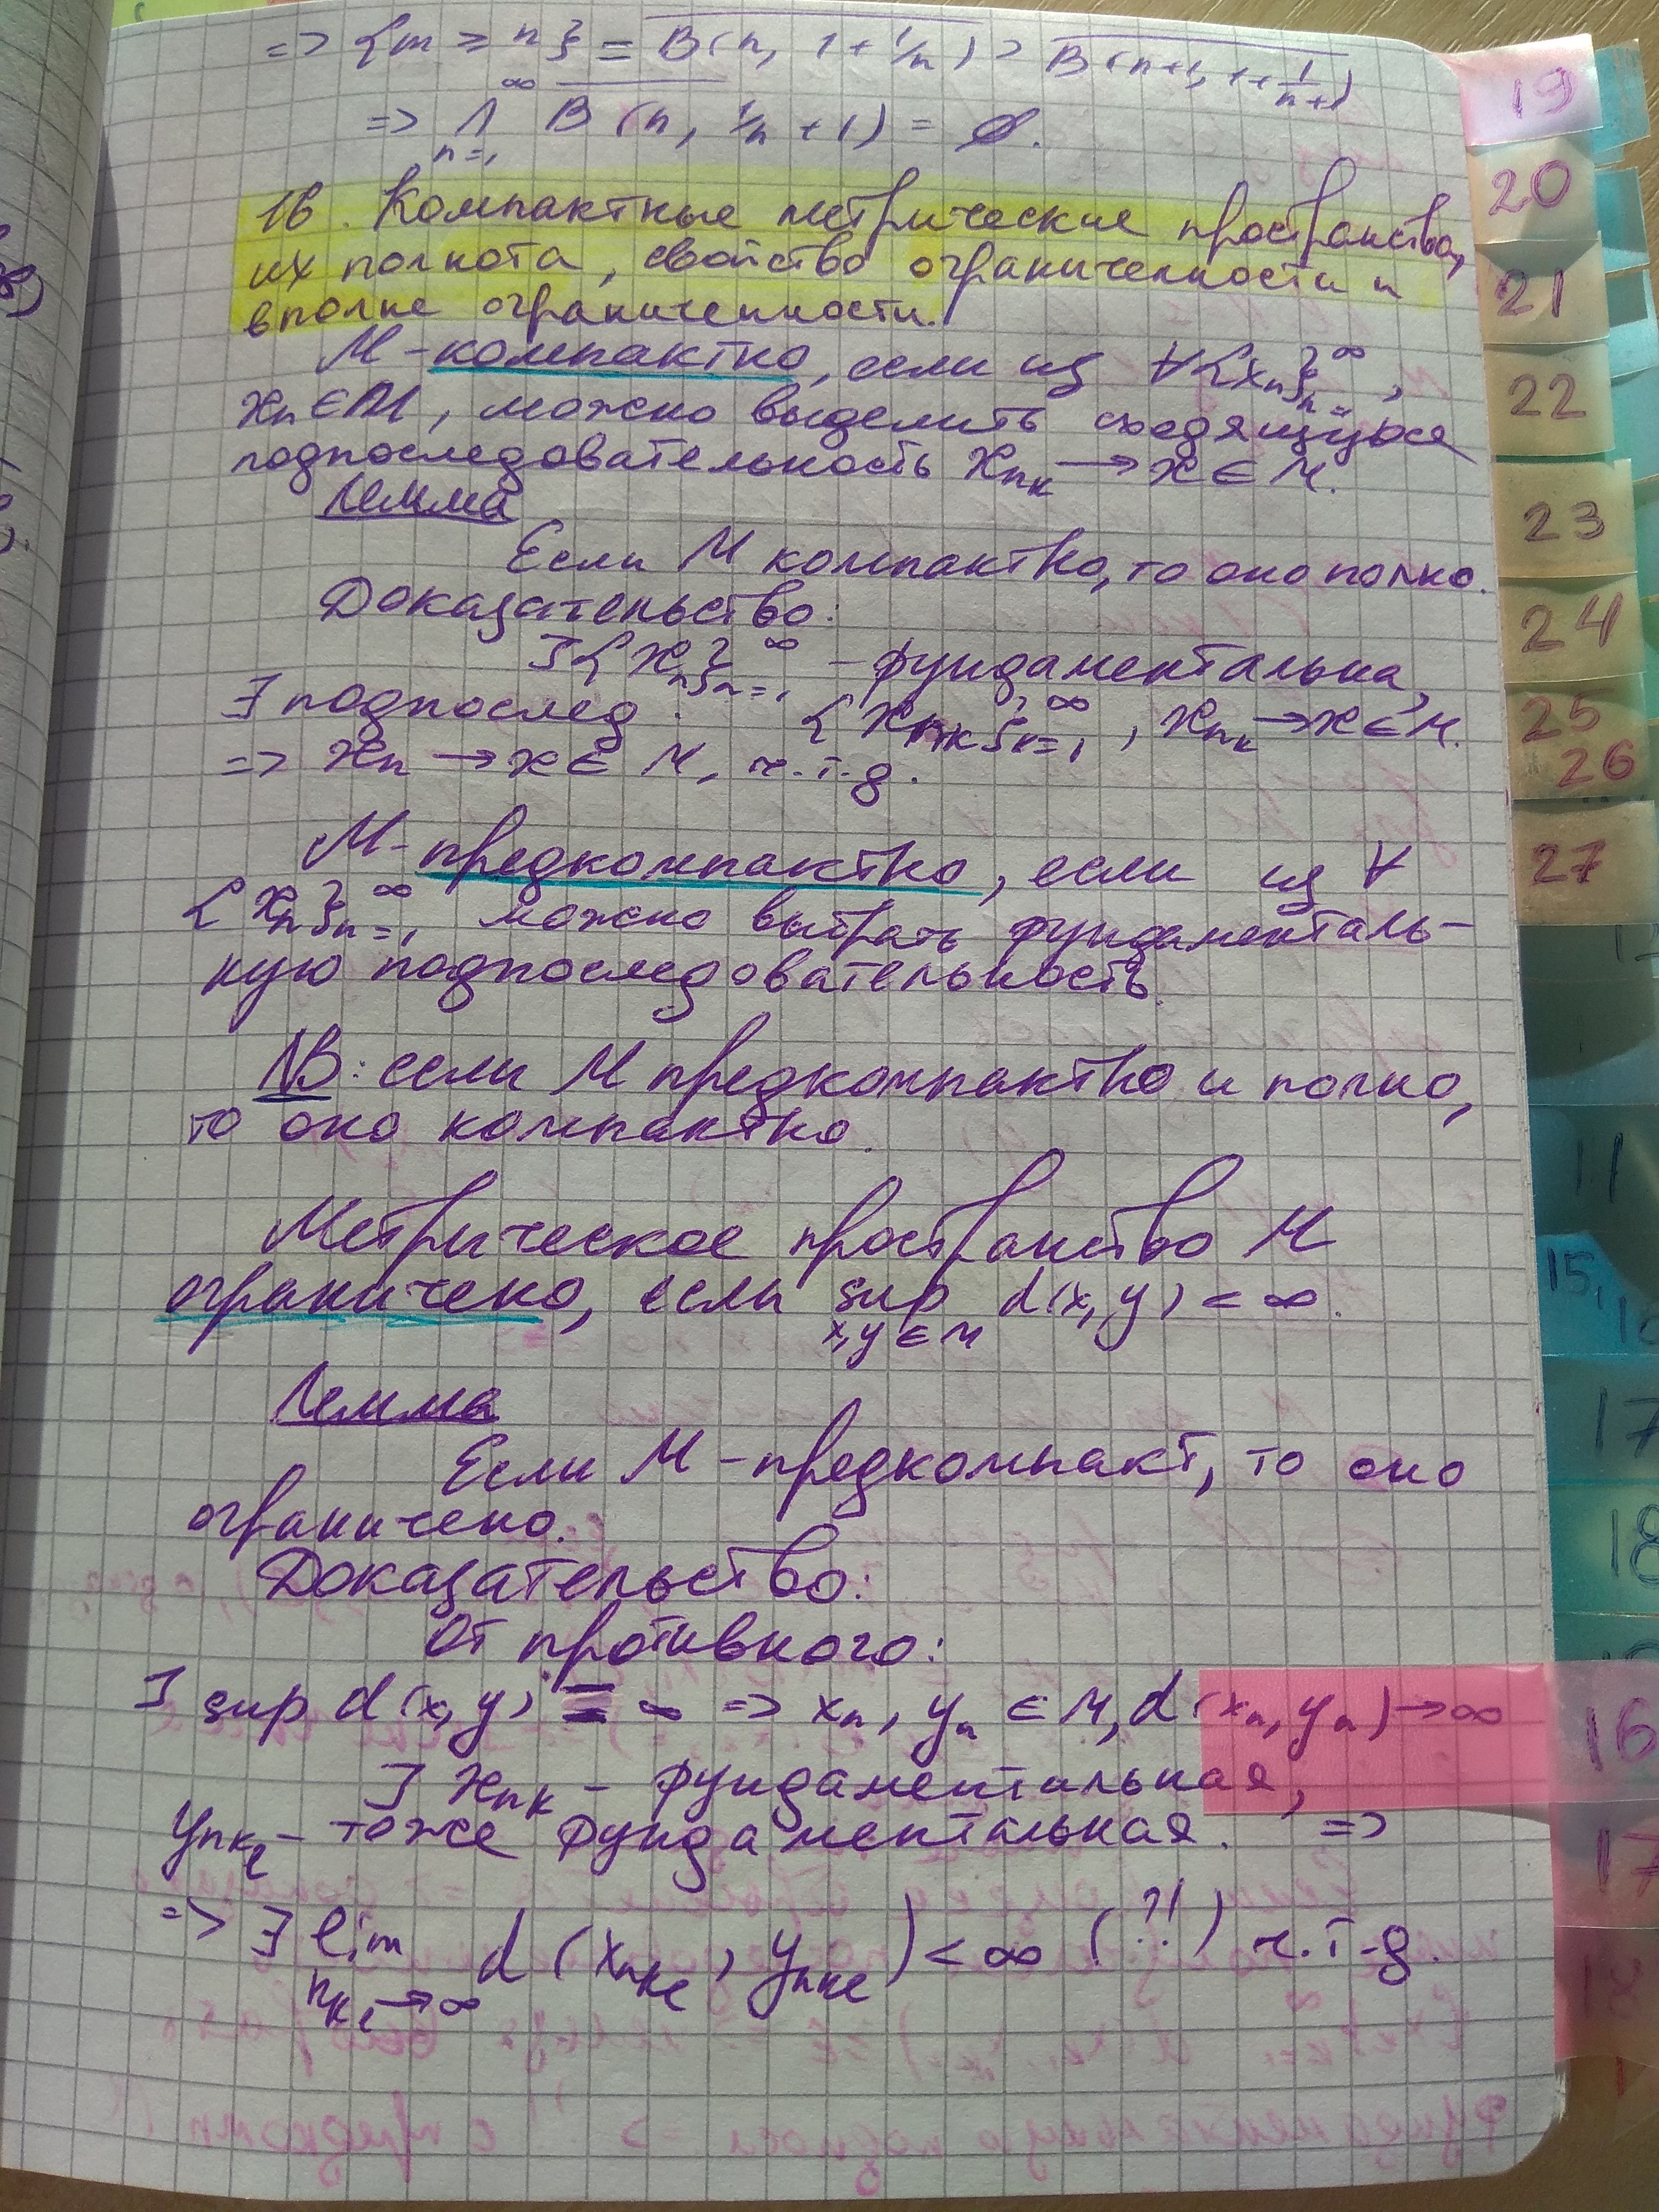 => {m ≥ n} = B(n, 1+1/n) ⊃ B(n+1, 1+1/(n+1))
=> ⋂_{n=1}^∞ B(n, 1/n + 1) = ∅.
16. Компактные метрические пространства,
их полнота, свойство ограниченности и
вполне ограниченности.
М-компактно, если из ∀{x_n}_{n=1}^∞,
x_n ∈ M, можно выделить сходящуюся
подпоследовательность x_{n_k} → x ∈ M.
Лемма
Если М компактно, то оно полно.
Доказательство:
] {x_n}_{n=1}^∞ – фундаментальна,
∃ подпослед. {x_{n_k}}_{k=1}^∞, x_{n_k} → x ∈ M.
=> x_n → x ∈ M, ч.т.д.
М-предкомпактно, если из ∀
{x_n}_{n=1}^∞ можно выбрать фундаменталь-
ную подпоследовательность.
NB: если М предкомпактно и полно,
то оно компактно.
Метрическое пространство М
ограничено, если sup d(x,y) < ∞.
x,y ∈ M
Лемма
Если М – предкомпакт, то оно
ограничено.
Доказательство:
От противного:
] sup d(x,y) = ∞ => x_n, y_n ∈ M, d(x_n, y_n) → ∞
] x_{n_k} – фундаментальная,
y_{n_{k_l}} – тоже фундаментальная. =>
=> ∃ lim d(x_{n_{k_l}}, y_{n_{k_l}}) < ∞ (?!) ч.т.д.
n_{k_l} → ∞
19
20
21
22
23
24
25
26
27
11
15,
17
18
16
17
18